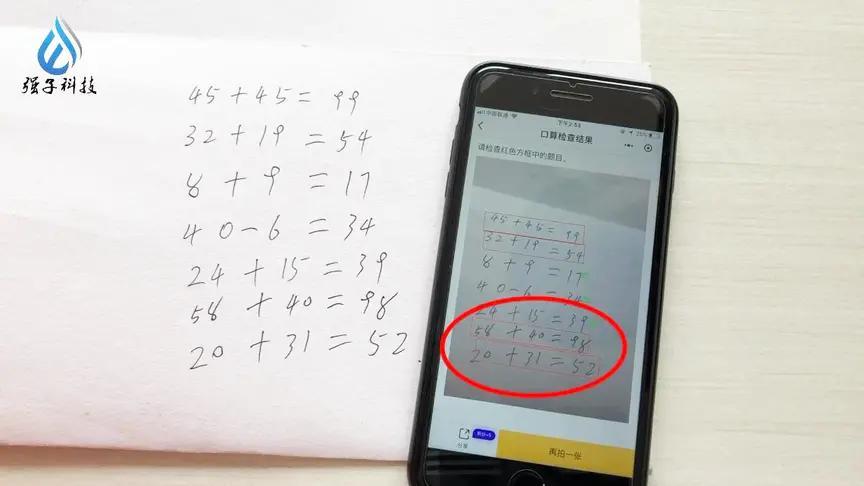 强子科技
45+45=99
32+19=54
8+9=17
40-6=34
24+15=39
58+40=98
20+31=52
中国联通
下午2:54
25%
口算检查结果
请检查红色方框中的题目。
45+45=99
32+19=54
8+9=17
40-6=34
24+15=39
58+40=98
20+31=52
分享
再拍一张